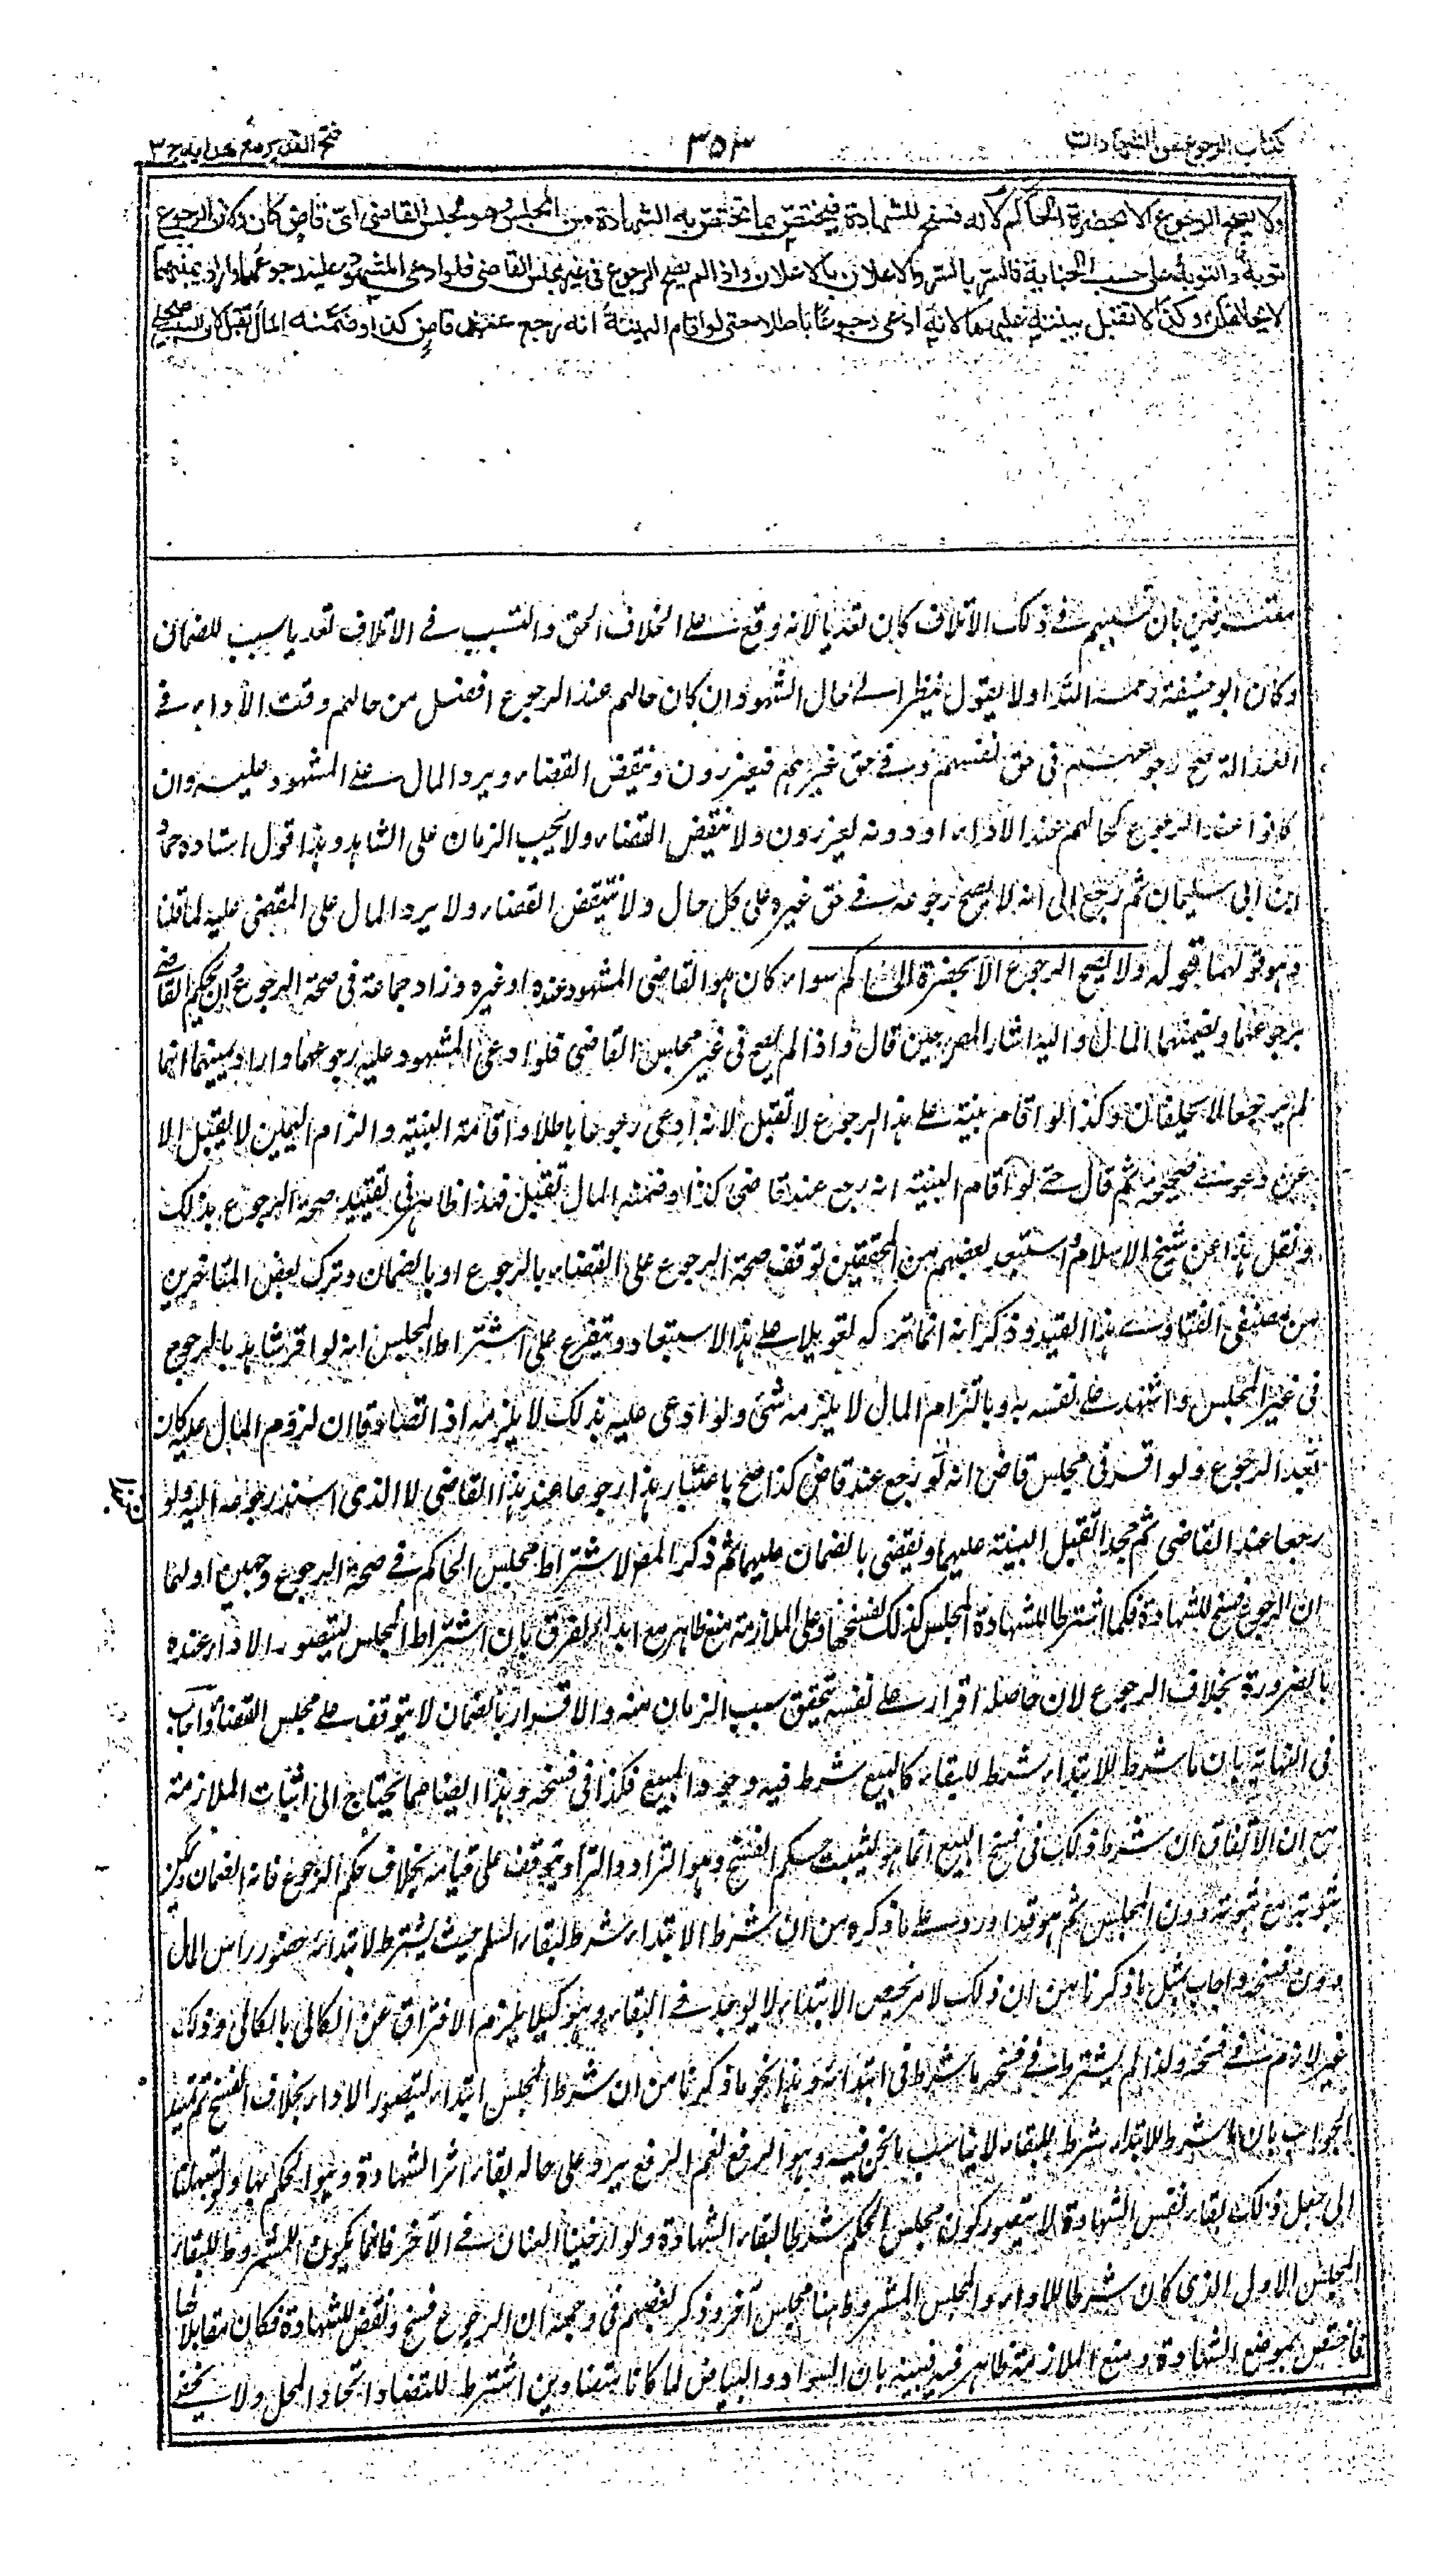 كتاب الرجوع عن الشهادات
٣٥٣
فتح القدير مع هدايه ج ٣
ولا يصح الرجوع الا بحضرة الحاكم لانه فسخ للشهادة فيختص بما تختص به الشهادة من المجلس وهو مجلس القاضي اى قاض كان ولان الرجوع
توبة والتوبة على حسب الجناية فالسر بالسر والاعلان بالاعلان واذا لم يصح الرجوع في غير مجلس القاضي فلو ادعى المشهود عليه رجوعهما واراد يمينهما
لا يحلفان وكذا لا تقبل بينته عليهما لانه ادعى رجوعا باطلا حتى لو اقام البينة انه رجع عند قاضي كذا وضمنه المال تقبل لان السبب صحيح
معترفين بان تسببهم في ذلك الاتلاف كان تعديا لانه وقع على الخلاف الحق والتسبب في الاتلاف تعديا سبب للضمان
وكان ابو حنيفة رحمه الله اولا يقول ينظر الى حال الشهود ان كان حالهم عند الرجوع افضل من حالهم وقت الاداء في
العدالة صح رجوعهم في حق نفسهم وفي حق غيرهم فيعزرون وينقض القضاء ويرد المال على المشهود عليه وان
كانوا عند الرجوع كحالهم عند الاداء او دونه يعزرون ولا ينقض القضاء ولا يجب الزمان على الشاهد وهذا قول استاده حماد
ابن ابى سليمان ثم رجع الى انه لا يصح رجوعه في حق غيره على كل حال ولا ينقض القضاء ولا يرد المال على المقضى عليه لما قلنا
وهو قولهما قوله ولا يصح الرجوع الا بحضرة الحاكم سواء كان هو القاضي المشهود عنده او غيره وزاد جماعة في صحة الرجوع ان يحكم القاضي
برجوعهما ويضمنهما المال واليه اشار المص حين قال واذا لم يصح في غير مجلس القاضي فلو ادعى المشهود عليه رجوعهما واراد يمينهما انهما
لم يرجعا لا يحلفان وكذا لو اقام بينة على هذا الرجوع لا تقبل لانه ادعى رجوعا باطلا واقامة البينة والزام اليمين لا يقبل الا
عن دعوى صحيحة ثم قال حتى لو اقام البينة انه رجع عند قاضى كذا وضمنه المال تقبل فهذا ظاهر في تقييد صحة الرجوع بذلك
ونقل هذا عن شيخ الاسلام واستبعد بعضهم من المحققين توقف صحة الرجوع على القضاء بالرجوع او بالضمان وترك بعض المتاخرين
من مصنفي الفتاوى هذا القيد وذكر انه انما تركه تعويلا على هذا الاستبعاد ويتفرع على اشتراط المجلس انه لو اقر شاهد بالرجوع
في غير المجلس واشهد على نفسه به وبالتزام المال لا يلزمه شئ ولو ادعى عليه بذلك لا يلزمه اذا تصادقا ان لزوم المال عليه كان
بهذا الرجوع ولو اقر في مجلس قاض انه رجع عند قاض كذا صح باعتبار هذا رجوعا عند هذا القاضي لا الذي اسند رجوعه اليه ولو
رجعا عند القاضي ثم جحدا تقبل البينة عليهما ويقضى بالضمان عليهما ثم ذكر المص لاشتراط مجلس الحاكم في صحة الرجوع وجهين اولهما
ان الرجوع فسخ للشهادة فكما اشترط للشهادة المجلس كذلك لفسخها وعلى الملازمة منع ظاهر مع ابداء الفرق بان اشتراط المجلس ليتصور الاداء عنده
بالضرورة بخلاف الرجوع لان حاصله اقرار على نفسه بتحقق سبب الزمان منه والاقرار بالضمان لا يتوقف على مجلس القضاء واجاب
في النهاية بان ما شرط للابتداء شرط للبقاء كالبيع شرط فيه وجود المبيع فكذا في فسخه وهذا ايضا مما يحتاج الى اثبات الملازمة
مع ان الاتفاق ان شرط ذلك في فسخ البيع انما هو ليثبت حكم الفسخ وهو التراد والتراد يتوقف على قيامه بخلاف حكم الرجوع فانه الضمان ويمكن
ثبوته مع ثبوته دون المجلس ثم هو قد اورد على ما ذكره من ان شرط الابتداء شرط البقاء السلم حيث يشترط لابتدائه حضور راس المال
دون فسخه واجاب بمثل ما ذكرنا من ان ذلك لامر يخص الابتداء لا يوجد في البقاء وهو كيلا يلزم الافتراق عن الكالئ بالكالئ وذلك
غير لازم في فسخه ولذا لم يشترط في فسخه ما شرط في ابتدائه وهذا نحو ما ذكرنا من ان شرط المجلس ابتداء ليتصور الاداء بخلاف الفسخ ثم تقييد
الجواب بان ما شرط للابتداء شرط للبقاء لا يناسب ما نحن فيه وهو الرفع نعم الرفع يرد على حالة بقاء اثر الشهادة وهو الحكم بها ولو تسهلنا
الى جعل ذلك بقاء نفس الشهادة لا يتصور كون مجلس الحكم شرطا لبقاء الشهادة ولو ارخينا العنان في الآخر فانما يكون المشروط للبقاء
المجلس الاول الذي كان شرطا للاداء والمجلس المشروط هنا مجلس آخر وذكر بعضهم في وجهه ان الرجوع فسخ ونقض للشهادة فكان مقابلا لها
فاختص بموضع الشهادة ومنع الملازمة ظاهر فيه فبينه بان السواد والبياض لما كانا متضادين اشترط للتضاد اتحاد المحل ولا يخفى